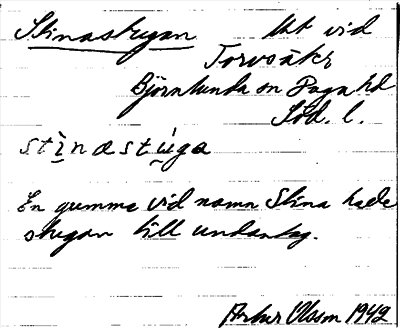 Stinastugan Utt vid
Torvsäkr
Björnlunda sn Daga hd
Söd. l.
stìnastúga
En gumma vid namn Stina hade
stugan till undantag.
Artur Olsson 1942